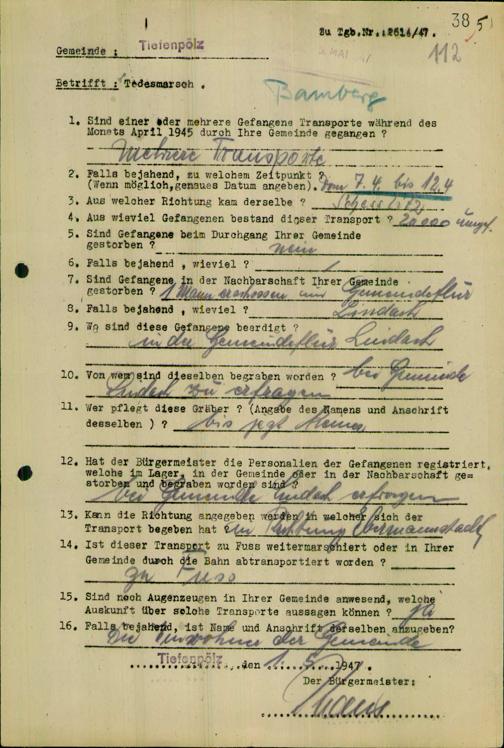 38 5
Zu Tgb.Nr. 2614/47.
112
Gemeinde : Tiefenpölz
Betrifft : Todesmarsch .
Bamberg
1. Sind einer oder mehrere Gefangene Transporte während des
Monats April 1945 durch Ihre Gemeinde gegangen ?
Mehrere Transporte
2. Falls bejahend, zu welchem Zeitpunkt ?
(Wenn möglich,genaues Datum angeben). Vom 7.4. bis 12.4
3. Aus welcher Richtung kam derselbe ? Schesslitz
4. Aus wieviel Gefangenen bestand dieser Transport ? 20000 ungef.
5. Sind Gefangene beim Durchgang Ihrer Gemeinde
gestorben ? nein
6. Falls bejahend , wieviel ? /
7. Sind Gefangene in der Nachbarschaft Ihrer Gemeinde
gestorben ? 1 Mann erschossen Gemeindeflur
8. Falls bejahend , wieviel ? Lindach
9. Wo sind diese Gefangene beerdigt ?
in der Gemeindeflur Lindach
10. Von wem sind dieselben begraben worden ? bei Gemeinde
Lindach zu erfragen
11. Wer pflegt diese Gräber ? (Angabe des Namens und Anschrift
desselben ) ? bis jetzt
12. Hat der Bürgermeister die Personalien der Gefangenen registriert,
welche im Lager, in der Gemeinde oder in der Nachbarschaft ge=
storben und begraben worden sind ?
bei Gemeinde Lindach erfragen
13. Kann die Richtung angegeben werden in welcher sich der
Transport begeben hat in Richtung Ebermannstadt
14. Ist dieser Transport zu Fuss weitermarschiert oder in Ihrer
Gemeinde durch die Bahn abtransportiert worden ?
zu Fuss
15. Sind noch Augenzeugen in Ihrer Gemeinde anwesend, welche
Auskunft über solche Transporte aussagen können ? ja
16. Falls bejahend, ist Name und Anschrift derselben anzugeben?
Die Einwohner der Gemeinde
Tiefenpölz , den 1. 5. 1947 .
Der Bürgermeister: